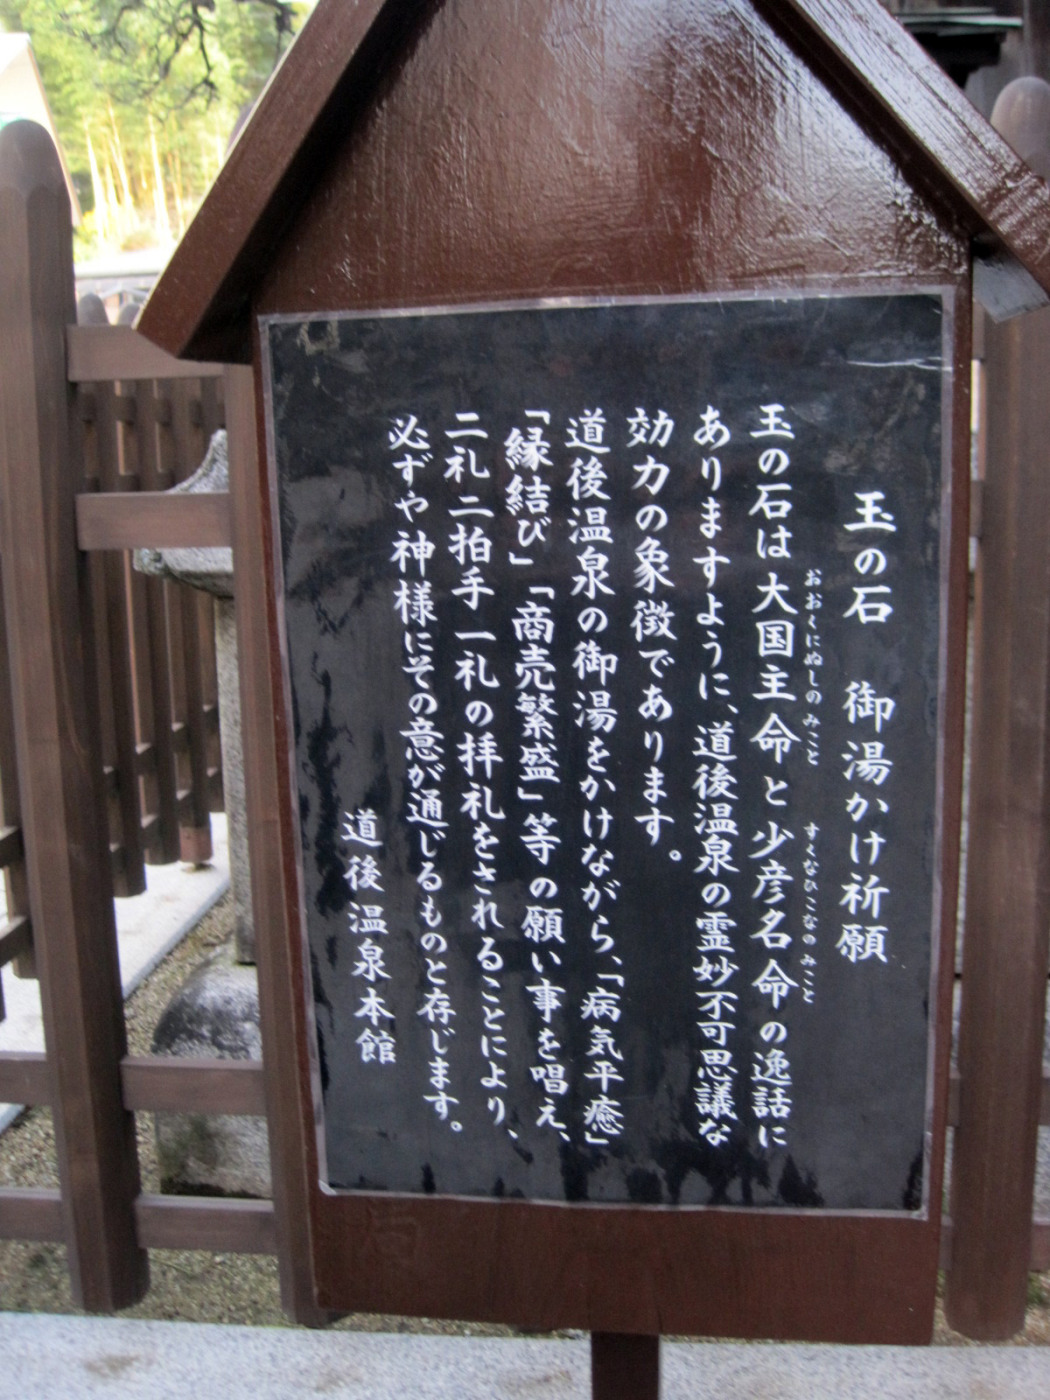 玉の石　御湯かけ祈願
おおくにぬしのみこと　すくなひこなのみこと
玉の石は大国主命と少彦名命の逸話に
ありますように、道後温泉の霊妙不可思議な
効力の象徴であります。
道後温泉の御湯をかけながら、「病気平癒」
「縁結び」「商売繁盛」等の願い事を唱え、
二礼二拍手一礼の拝礼をされることにより、
必ずや神様にその意が通じるものと存じます。
道後温泉本館